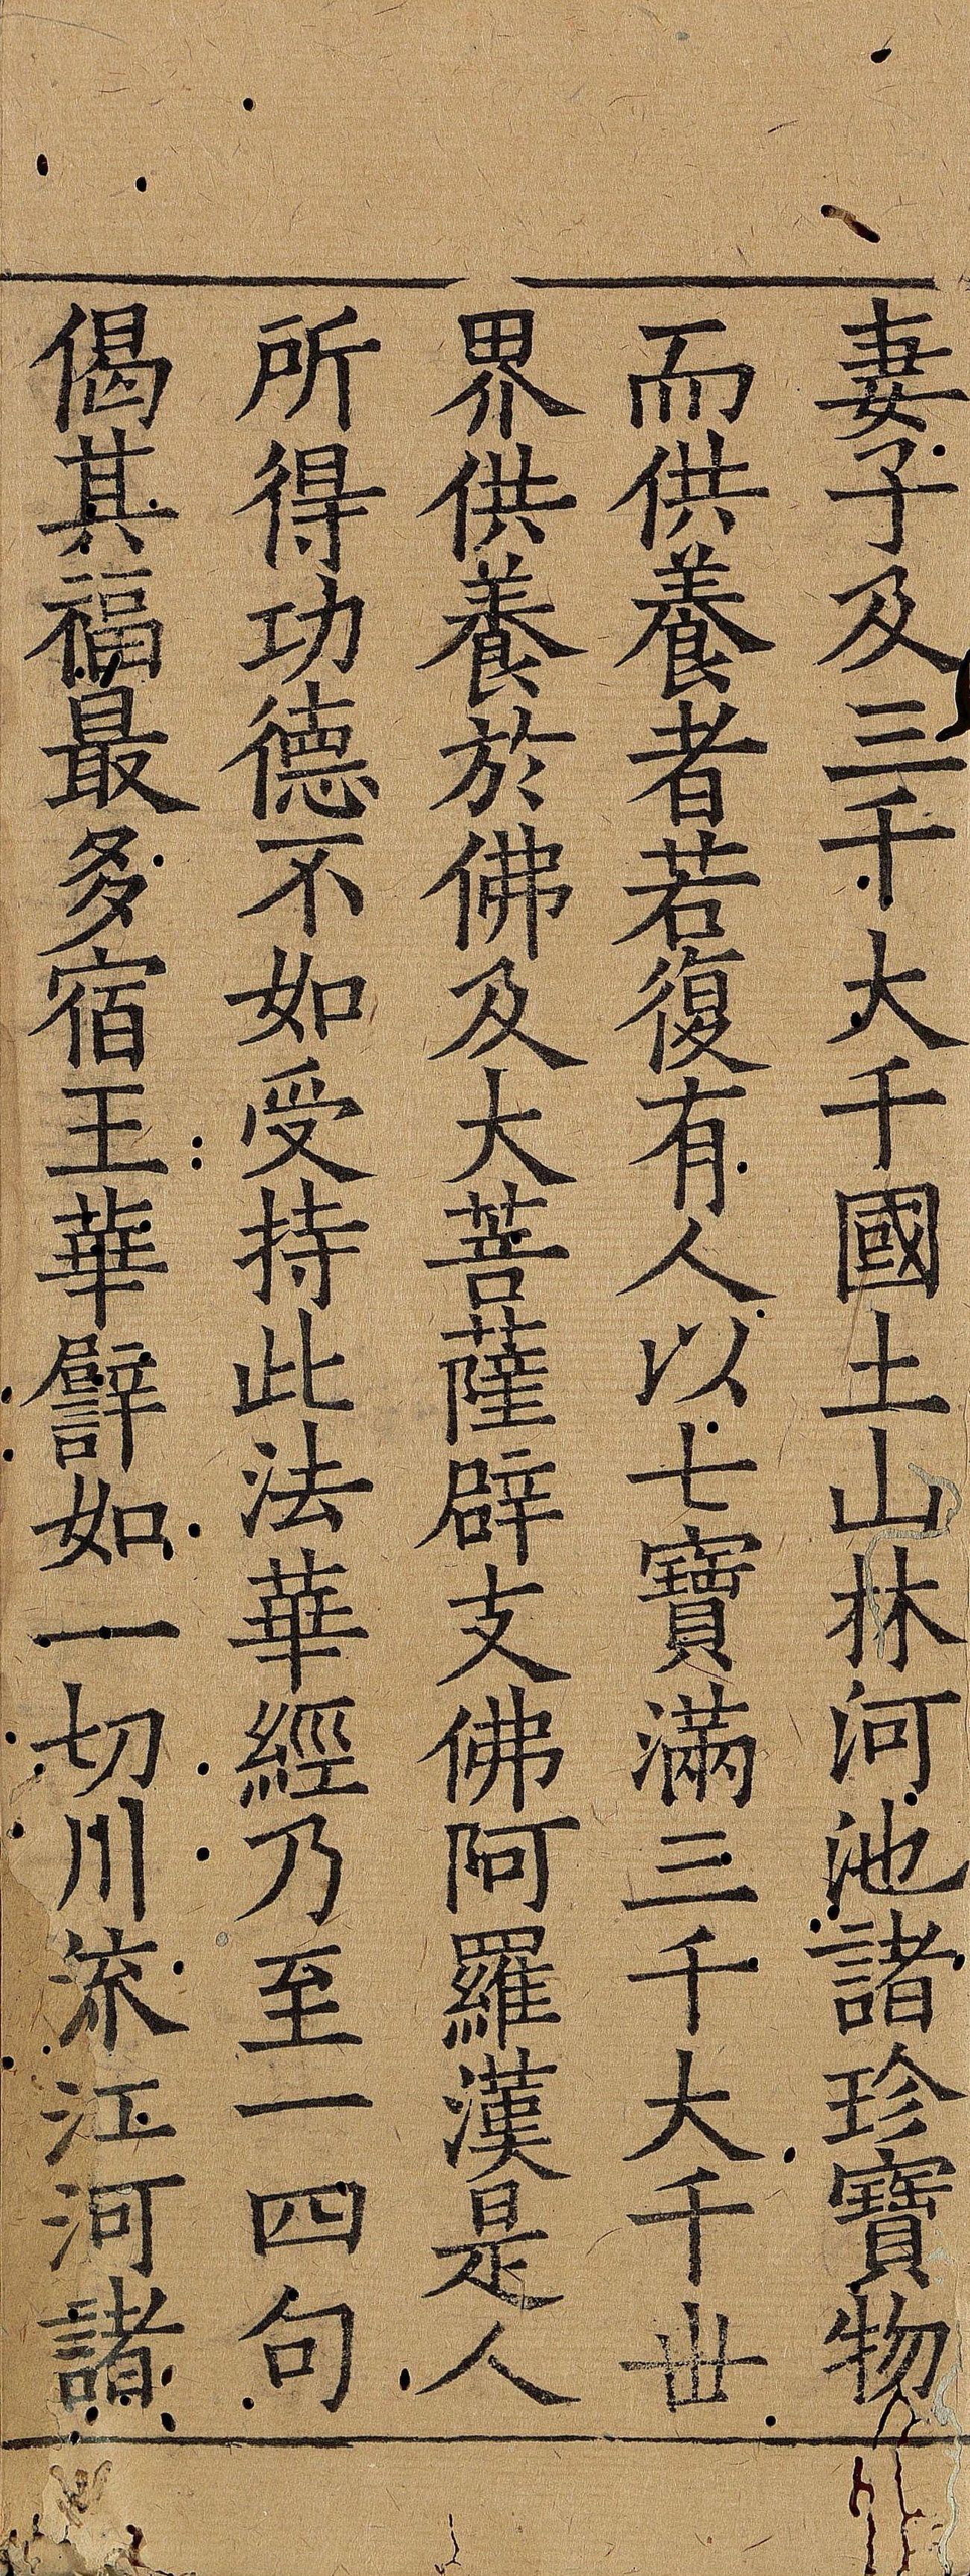 妻子及三千大千國土山林河池諸珍寶物
而供養者若復有人以七寶滿三千大千丗
界供養於佛及大菩薩辟支佛阿羅漢是人
所得功德不如受持此法華經乃至一四句
偈其福最多宿王華譬如一切川流江河諸